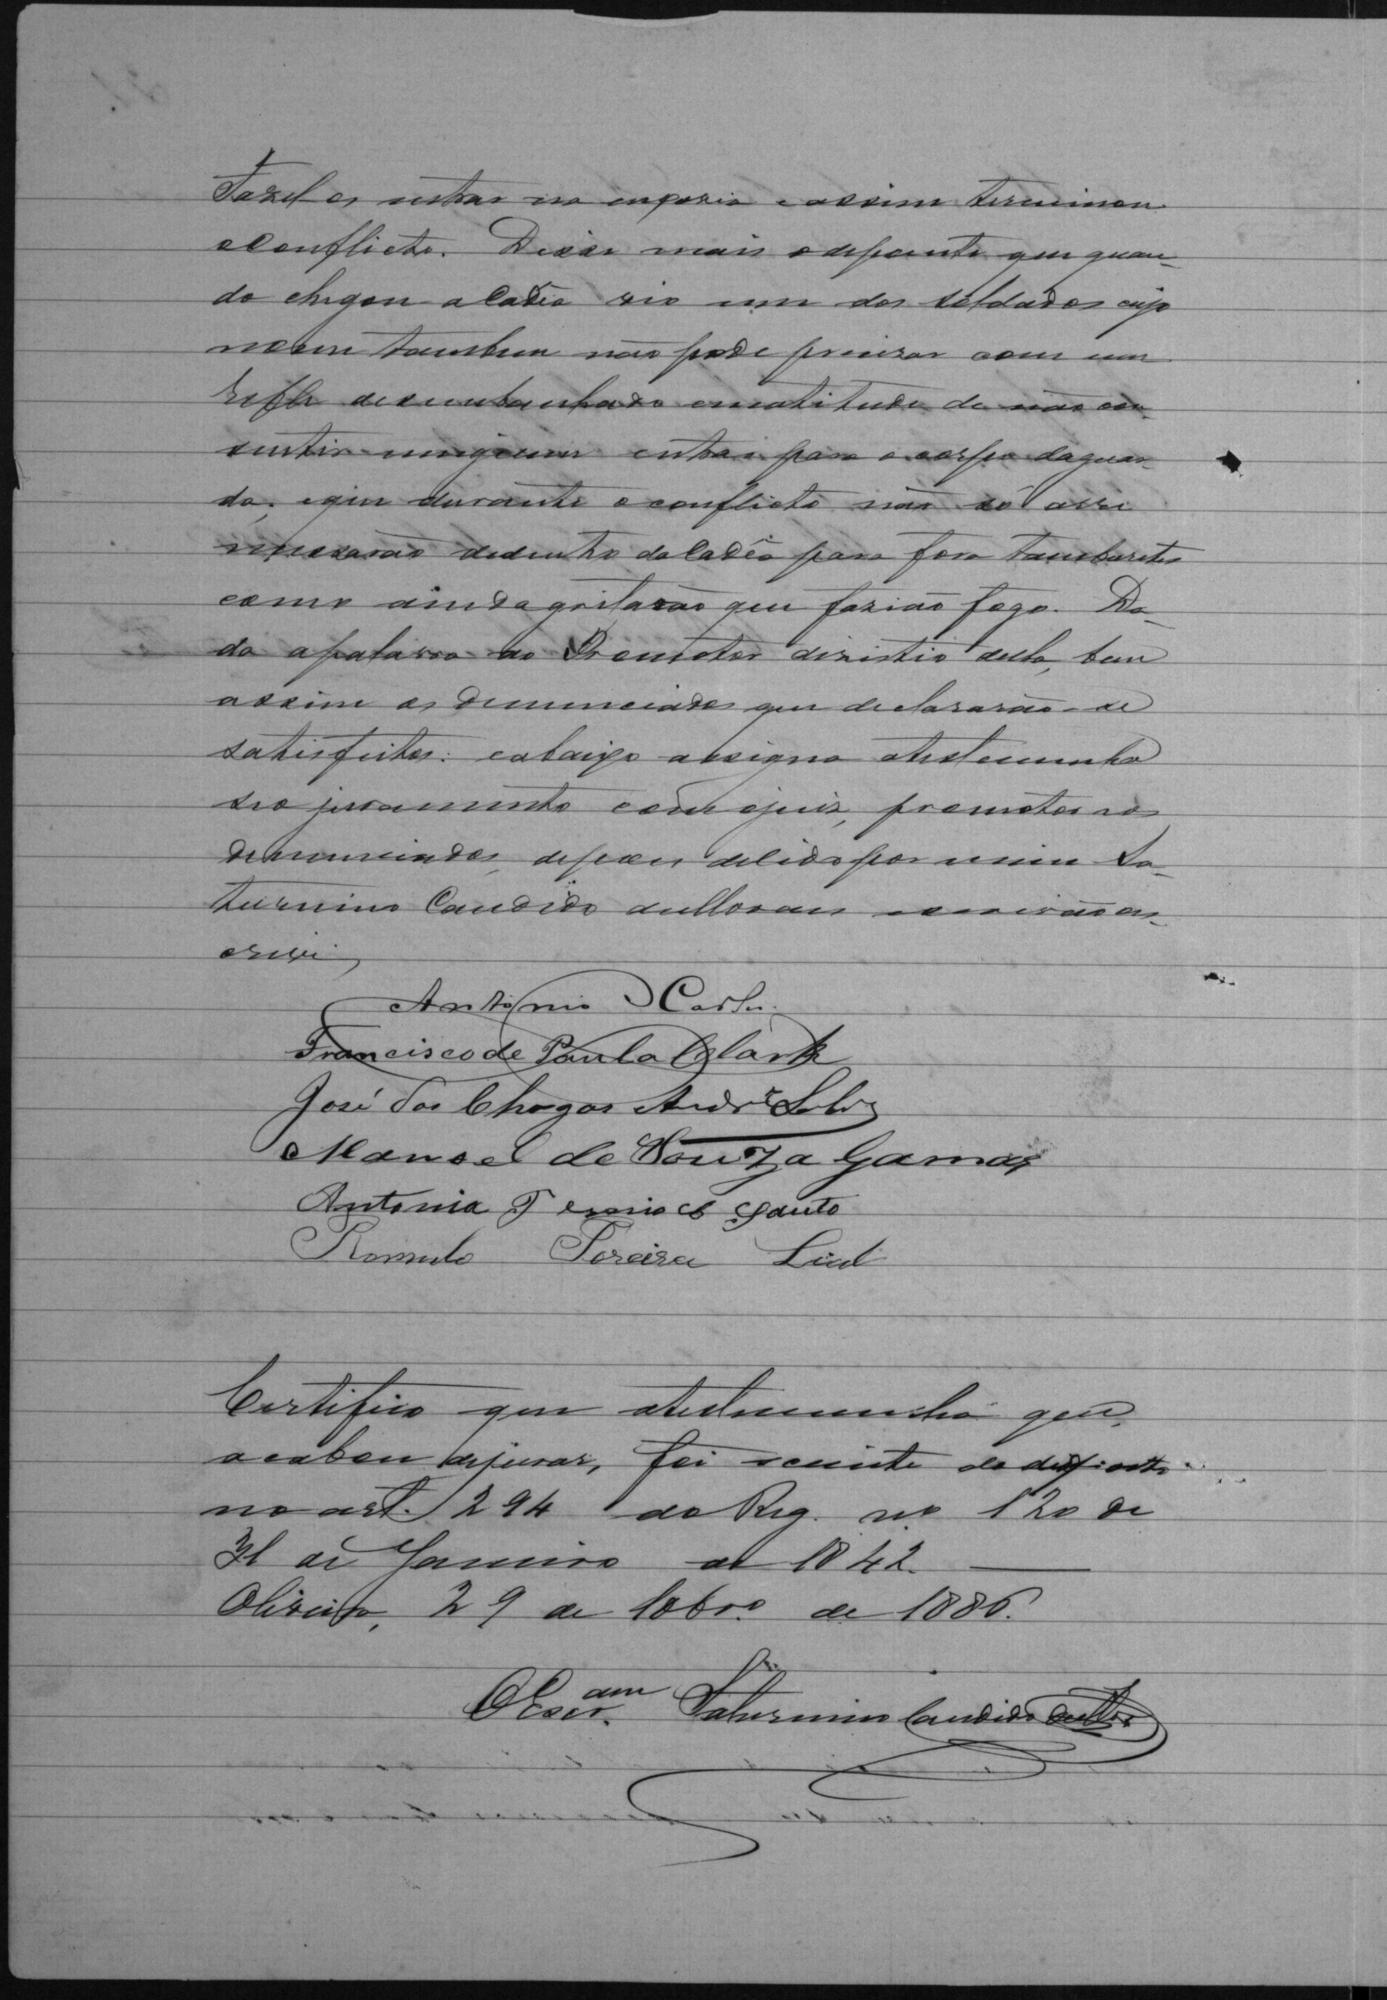 Fazel os entrar na enxovia e assim terminou
o conflicto. Disse mais o depoente que quan-
do chegou a Cadêa vio um dos soldados cujo
nome tambem não pode precizar com um
refle desembanhado em atitude de não con-
sentir ninguem entrar para o corpo da guar-
da; e que durante o conflicto não só arre
meçarão de dentro da Cadêa para fora tamboretes
como ainda gritarão que fazião fogo. Da-
da a palavra ao Promotor dizistio della, bem
assim os denunciados que declararão-se
satisfeitos: e abaixo assigna a testemunha
seo juramento com o juiz, promotor e os
denunciados, depois de lido por mim Sa-
turnino Candido escrivão es-
crivi,
Antonio Carlos
Francisco de Paula Clark
José das Chagas Andr.e
Manoel de Souza Gama
Antonio
Romulo Pereira Leal
Certifico que a testemunha que
acabou de jurar, foi sciente do disposto
no art. 294 do Reg. no 120 de
31 de Janeiro de 1842.
Oliveira, 29 de 10br.o de 1886.
O Escr.am Saturnino Candido